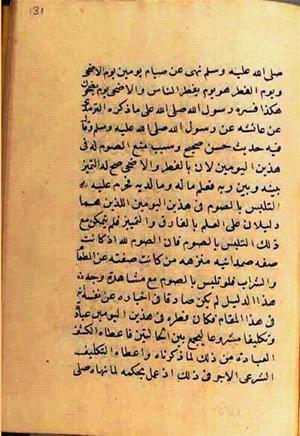 131
صلى الله عليه وسلم نهى عن صيام يومين يوم الاضحى
ويوم الفطر هو يوم يفطر الناس والاضحى يوم يضحون
هكذا فسره رسول الله صلى الله على ما ذكره الترمذي
عن عائشه عن رسول الله صلى الله عليه وسلم وقال
فيه حديث حسن صحيح وسبب منع الصوم له في
هذين اليومين لان بالفطر والاضحى صح له التميز
بينه وبين ربه فعلم ما له وما لديه فحرم عليه
التلبس بالصوم في هذين اليومين اللذين هما
دليلان على العلم بالفارق والتمييز فلم يتمكن مع
ذلك التلبس بالصوم فان الصوم لله اذ كانت
صفه صمدانيه منزهه من كانت صفته عن الطعام
والشراب فلو تلبس بالصوم مع مشاهدة وجه
هذا الدليل لم يكن صادقا في اخباره عن نفسه
في هذا المقام فكان فطره في هذين اليومين عبادة
وتكليفا مشروعا ليجمع بين الحالتين فاعطاه الكشف
العبادة من ذلك لما ذكرناه واعطاه التكليف
الشرعي الاجر في ذلك اذ عمل بحكمه لما نهاه صلى